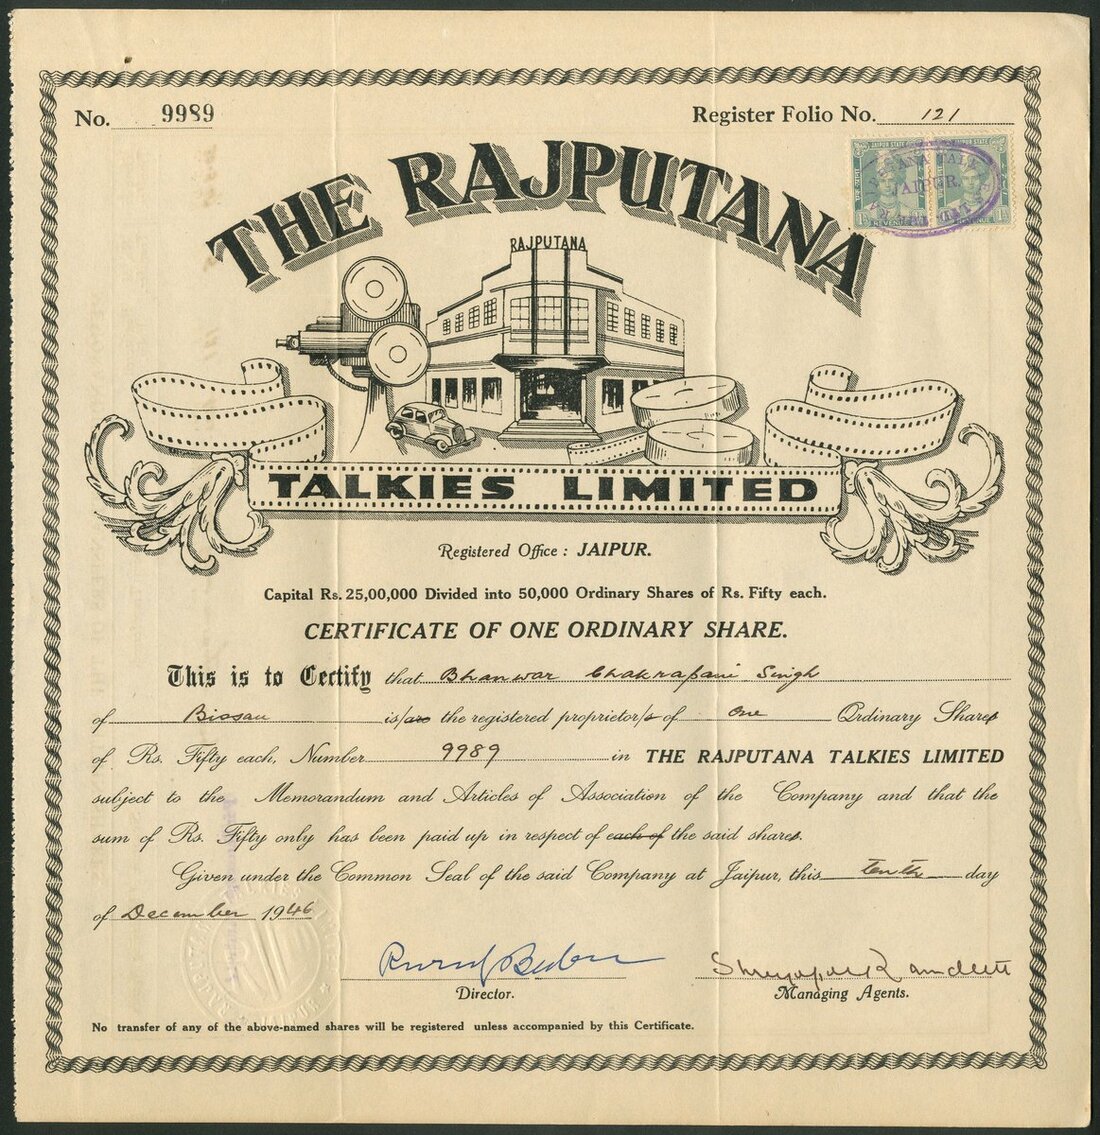 No. 9989
Register Folio No. 121
THE RAJPUTANA
RAJPUTANA
TALKIES LIMITED
Registered Office : JAIPUR.
Capital Rs. 25,00,000 Divided into 50,000 Ordinary Shares of Rs. Fifty each.
CERTIFICATE OF ONE ORDINARY SHARE.
This is to Certify that Bhanwar Chakrapani Singh
of Bissau is/are the registered proprietor/s of One Ordinary Shares
of Rs. Fifty each, Number 9989 in THE RAJPUTANA TALKIES LIMITED
subject to the Memorandum and Articles of Association of the Company and that the
sum of Rs. Fifty only has been paid up in respect of each of the said shares.
Given under the Common Seal of the said Company at Jaipur, this tenth day
of December 1946
Director.
Managing Agents.
No transfer of any of the above-named shares will be registered unless accompanied by this Certificate.
JAIPUR STATE
JAIPUR STATE
JAIPUR.